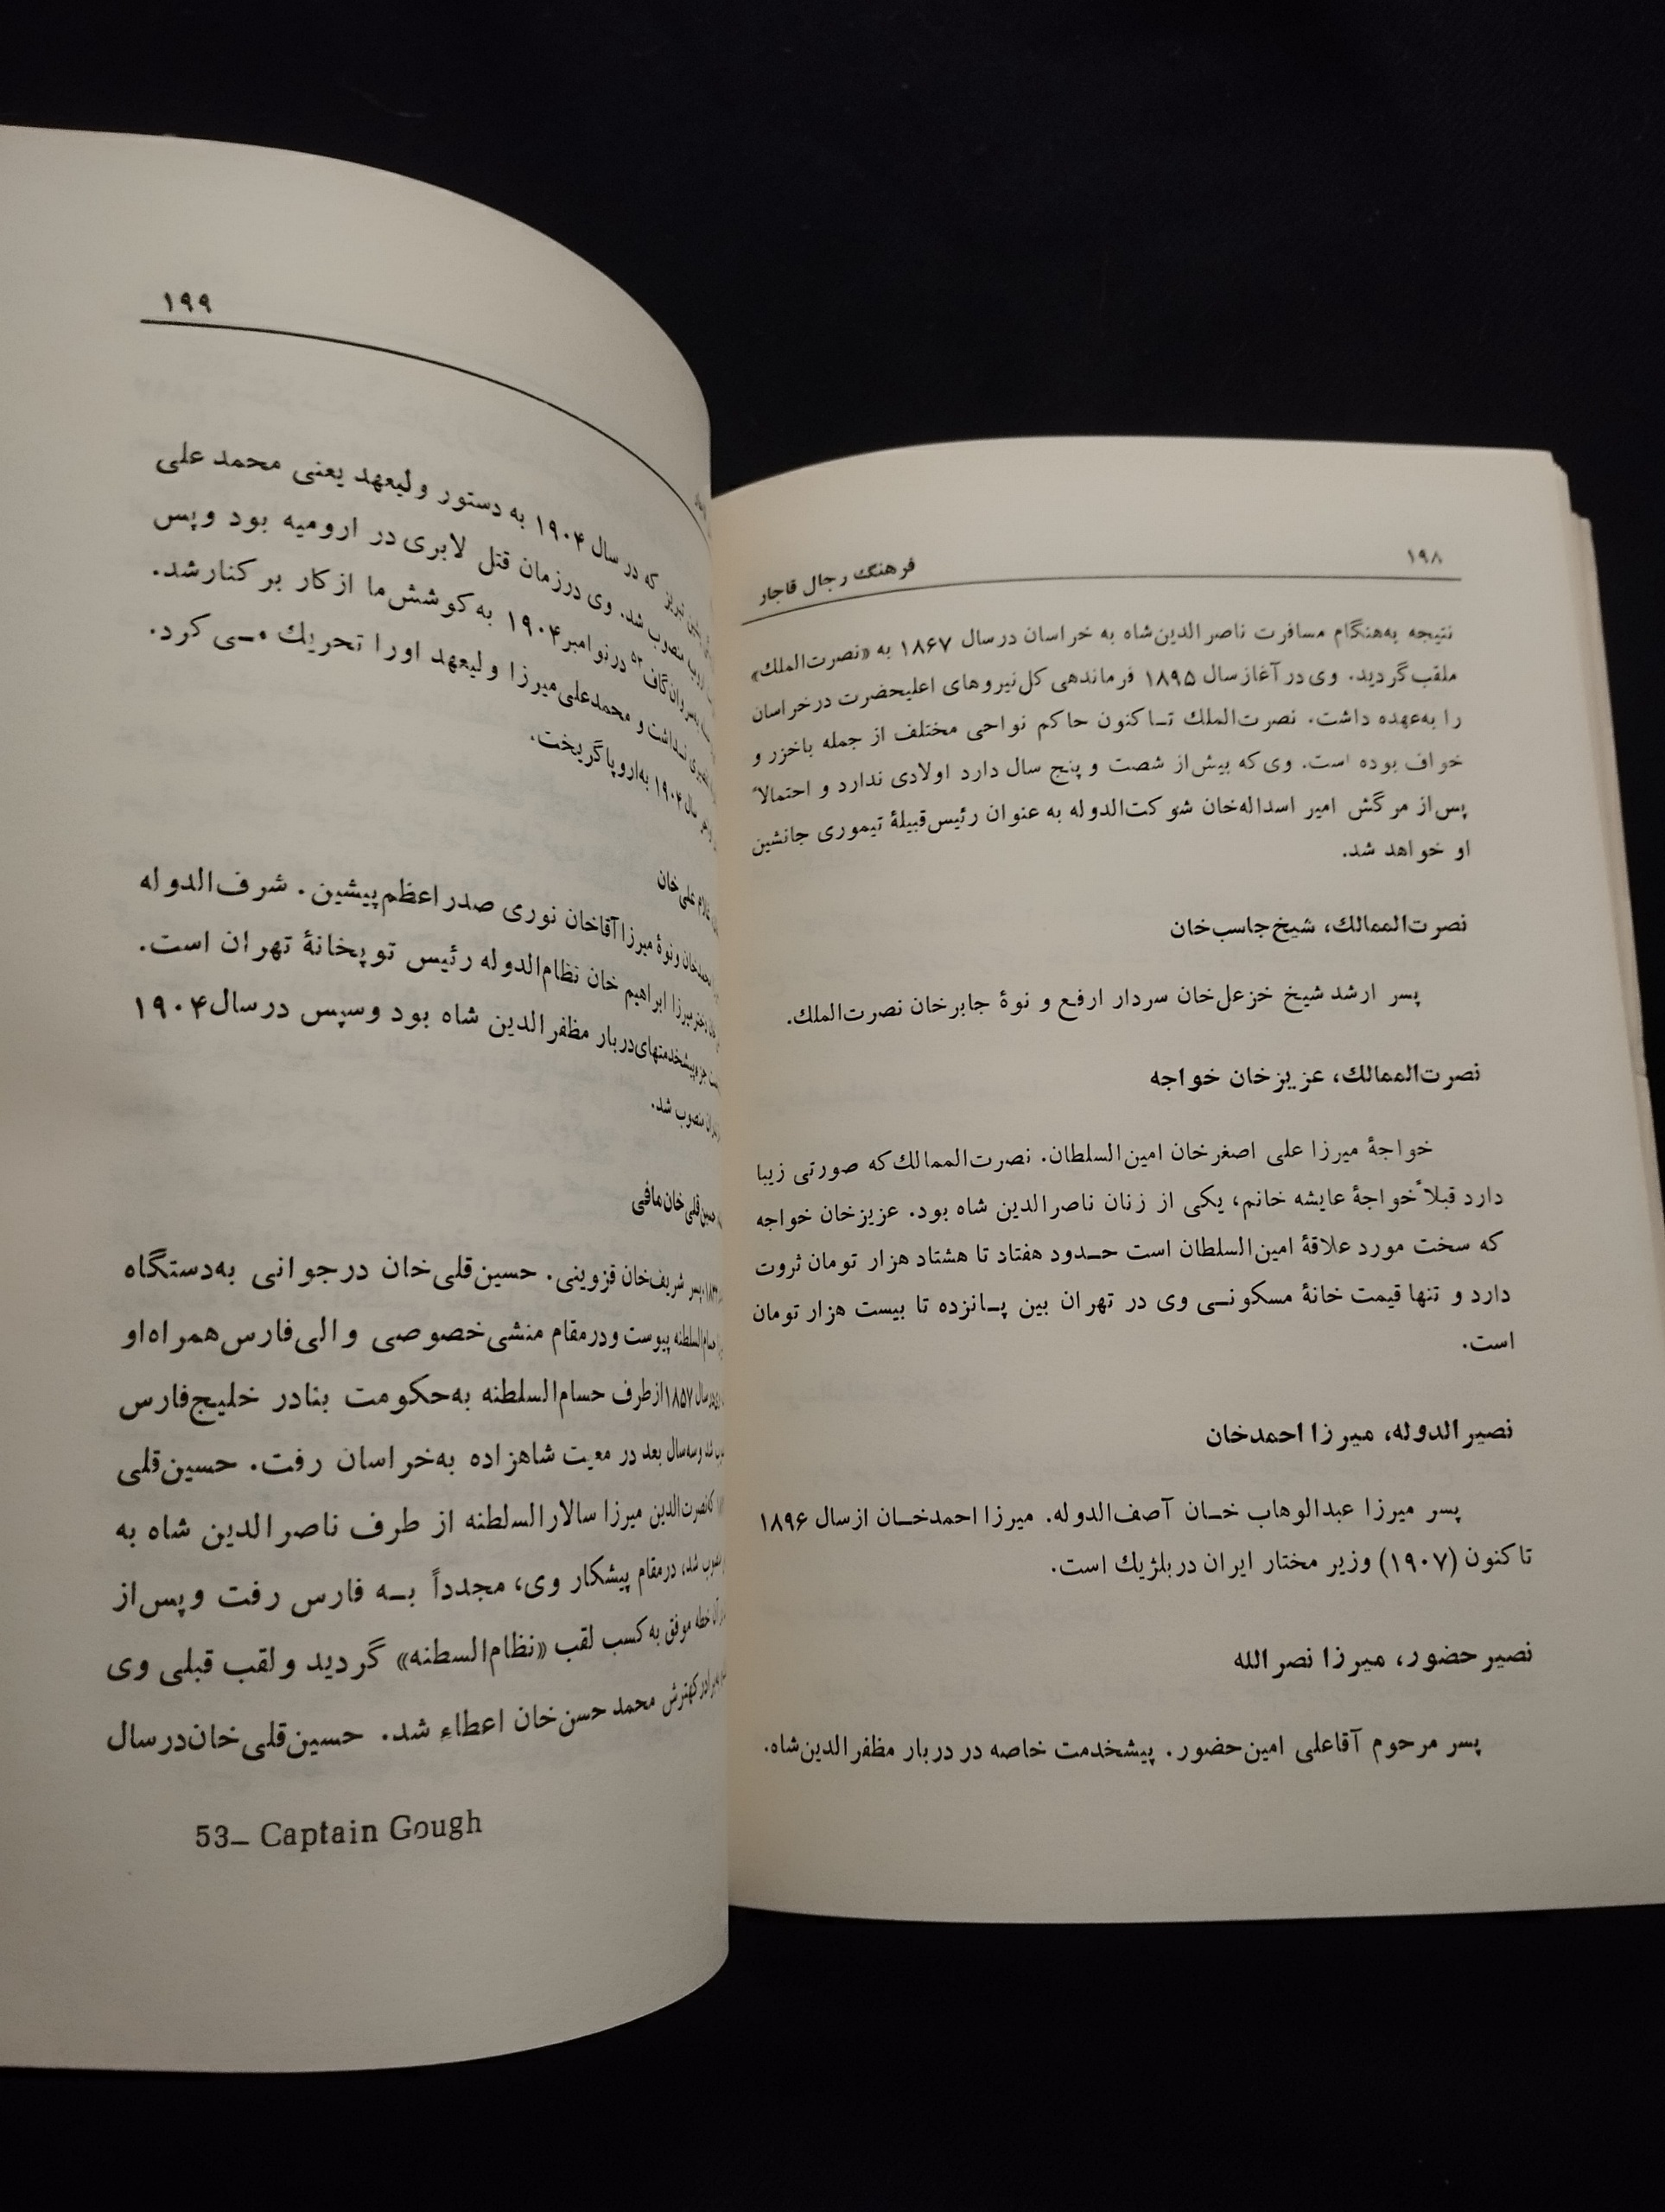 ۱۹۸
فرهنگ رجال قاجار
نتیجه به‌هنگام مسافرت ناصرالدین‌شاه به خراسان درسال ۱۸۶۷ به «نصرت‌الملك»
ملقب‌گردید. وی در آغاز سال ۱۸۹۵ فرماندهی کل‌نیروهای اعلیحضرت درخراسان
را به‌عهده داشت. نصرت‌الملك تـاکنون حاکم نواحی مختلف از جمله باخزر و
خواف بوده است. وی‌که بیش‌از شصت و پنج سال دارد اولادی ندارد و احتمالاً
پس‌از مرگش امیر اسداله‌خان شوکت‌الدوله به عنوان رئیس‌قبیلهٔ تیموری جانشین
او خواهد شد.
نصرت‌الممالك، شیخ‌جاسب‌خان
پسر ارشد شیخ خزعل‌خان سردار ارفع و نوهٔ جابرخان نصرت‌الملك.
نصرت‌الممالك، عزیزخان خواجه
خواجهٔ میرزا علی اصغرخان امین‌السلطان. نصرت‌الممالك‌که صورتی زیبا
دارد قبلاً خواجهٔ عایشه خانم، یکی از زنان ناصرالدین شاه بود. عزیزخان خواجه
که سخت مورد علاقهٔ امین‌السلطان است حـدود هفتاد تا هشتاد هزار تومان ثروت
دارد و تنها قیمت خانهٔ مسکونـی وی در تهران بین پـانزده تا بیست هزار تومان
است.
نصیرالدوله، میرزا احمدخان
پسر میرزا عبدالوهاب خـان آصف‌الدوله. میرزا احمدخـان ازسال ۱۸۹۶
تاکنون (۱۹۰۷) وزیر مختار ایران دربلژیك است.
نصیرحضور، میرزا نصرالله
پسر مرحوم آقاعلی امین‌حضور. پیشخدمت خاصه در دربار مظفرالدین‌شاه.
۱۹۹
تبریز که در سال ۱۹۰۴ به دستور ولیعهد یعنی محمد علی
منصوب شد. وی درزمان قتل لابری در ارومیه بود وپس
گاف۵۳ درنوامبر۱۹۰۴ به‌کوشش‌ما ازکار برکنارشد.
نـداشت و محمدعلی‌میرزا ولیعهد اورا تحریك مـی کرد.
سال ۱۹۰۴ به‌اروپاگریخت.
غلام علی‌خان
محمدخان ونوهٔ میرزا آقاخان نوری صدراعظم‌پیشین. شرف‌الدوله
میرزا ابراهیم خان نظام‌الدوله رئیس توپخانهٔ تهران است.
جزءپیشخدمتهای‌دربار مظفرالدین شاه بود وسپس درسال۱۹۰۴
منصوب شد.
حسین‌قلی‌خان‌مافی
پسر شریف‌خان قزوینی. حسین‌قلی‌خان درجوانی به‌دستگاه
حسام‌السلطنه پیوست ودرمقام منشی‌خصوصی والی‌فارس‌همراه‌او
سال ۱۸۵۷ازطرف حسام‌السلطنه به‌حکومت بنادر خلیج‌فارس
شد وسه‌سال بعد در معیت شاهزاده به‌خراسان رفت. حسین‌قلی
نصرت‌الدین میرزا سالارالسلطنه از طرف ناصرالدین شاه به
منصوب شد، درمقام پیشکار وی، مجدداً بـه فارس رفت وپس‌از
آن خطه موفق به‌کسب لقب «نظام‌السطنه» گردید ولقب قبلی وی
برادرکهترش محمد حسن‌خان اعطاء شد. حسین‌قلی‌خان‌درسال
53– Captain Gough